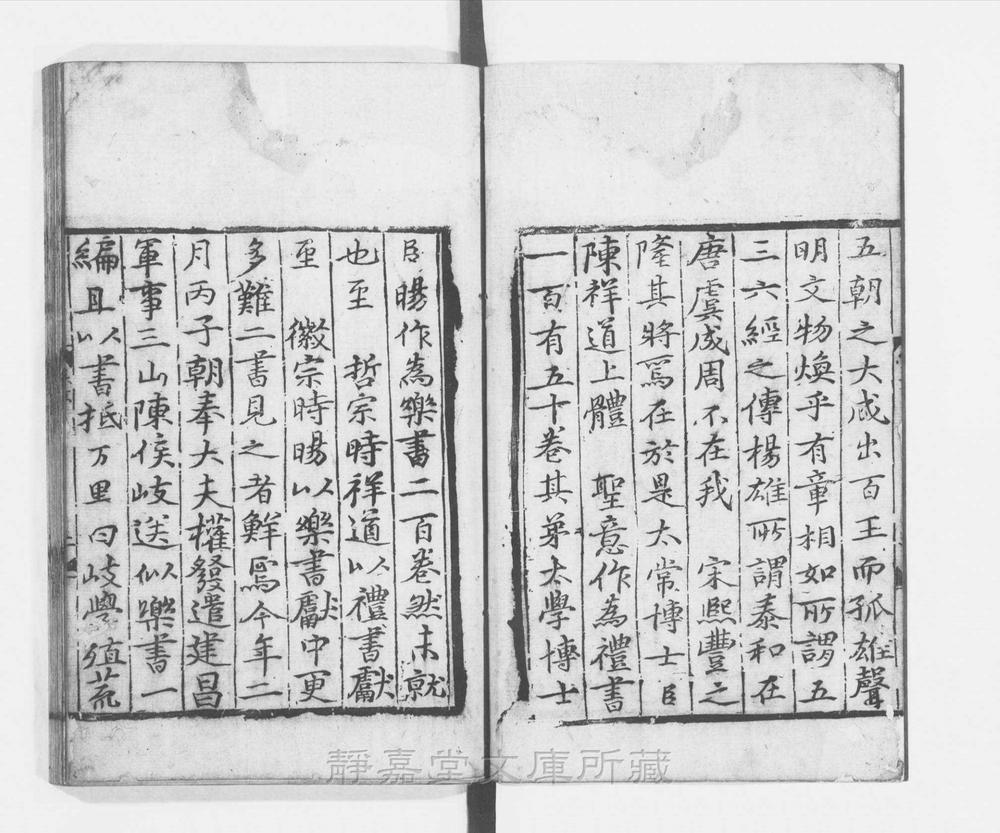 五朝之大成出百王而孤雄聲
明文物煥乎有章相如所謂五
三六經之傳楊雄所謂泰和在
唐虞成周不在我　宋熙豐之
隆其將焉在於是太常博士臣
陳祥道上體　聖意作為禮書
一百有五十卷其弟太學博士
臣暘作為樂書二百卷然未就
也至　哲宗時祥道以禮書獻
至　徽宗時暘以樂書獻中更
多難二書見之者鮮焉今年二
月丙子朝奉大夫權發遣建昌
軍事三山陳侯岐送似樂書一
編且以書抵万里曰岐學殖荒
靜嘉堂文庫所藏